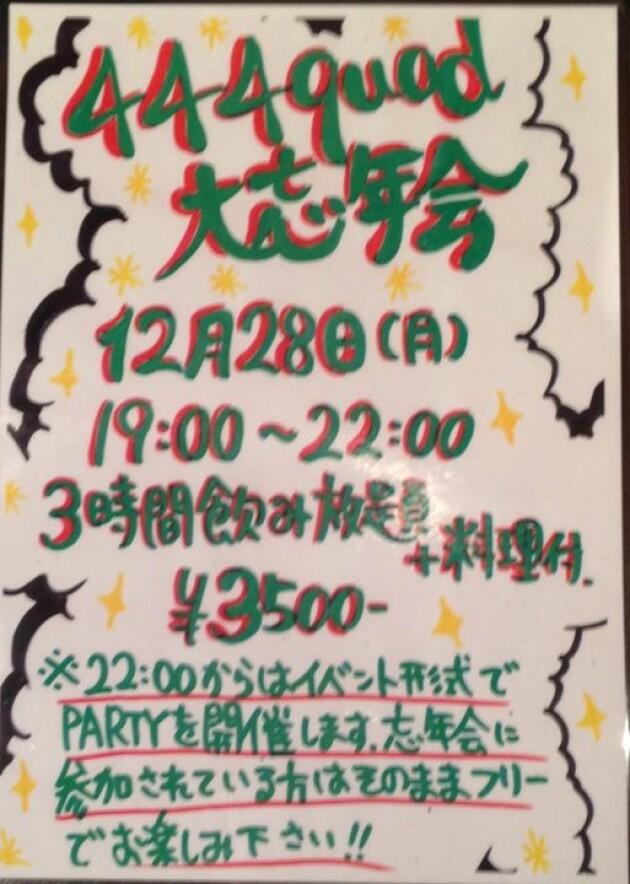 444quad
大忘年会
12月28日(月)
19:00～22:00
3時間飲み放題
+料理付.
¥3500-
※22:00からはイベント形式で
PARTYを開催します.忘年会に
参加されている方はそのままフリー
でお楽しみ下さい!!